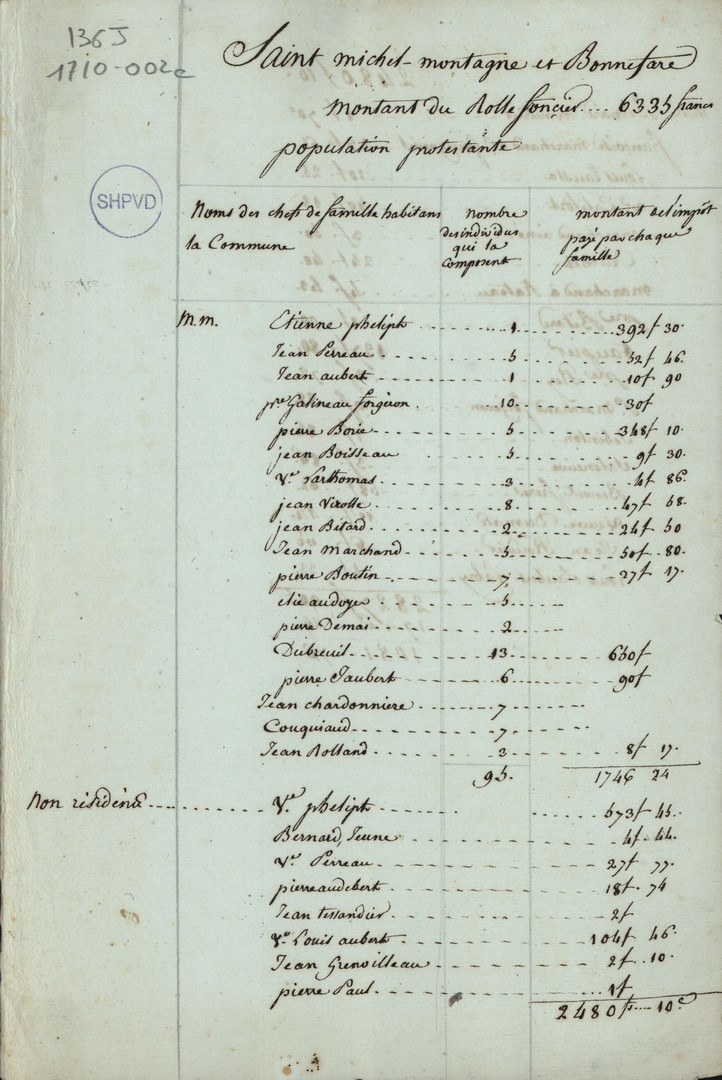 136J
1710-002c
SHPVD
Saint michel-montagne et Bonnefare
montant du Rolle foncier.... 6335 francs
population protestante
Noms des chefs de famille habitans
la Commune
nombre
des individus
qui la
composent
montant de l'impôt
payé par chaque
famille
M.m. Etienne phelipt ... 1 ... 392f 30.
Jean Perreau ... 5 ... 52f 46.
Jean aubert ... 1 ... 10f 90
pre Galineau forgeron ... 10 ... 30f
pierre Borie ... 5 ... 348f 10.
jean Boisseau ... 5 ... 9f 30.
Ve Parthomas ... 3 ... 4f 86.
jean Virolle ... 8 ... 47f 58.
jean Bétard ... 2 ... 24f 50
Jean Marchand ... 5 ... 50f 80.
pierre Boutin ... 7 ... 27f 17.
elie audoyer ... 5 ...
pierre Demai ... 2 ...
Dubreuil ... 13 ... 650f
pierre Jaubert ... 6 ... 90f
Jean chardonniere ... 7 ...
Couquiaud ... 7 ...
Jean Rolland ... 3 ... 8f 17.
95. 1746 24
Non résidens ... Ve phelipt ... 573f 45.
Bernard, Jeune ... 4f 44.
Ve Perreau ... 27f 77.
pierre audebert ... 18f 74
Jean tessandier ... 2f
Ve Louis aubert ... 104f 46.
Jean Grenoilleau ... 2f 10.
pierre Paul ... 1f
2480f ... 10c